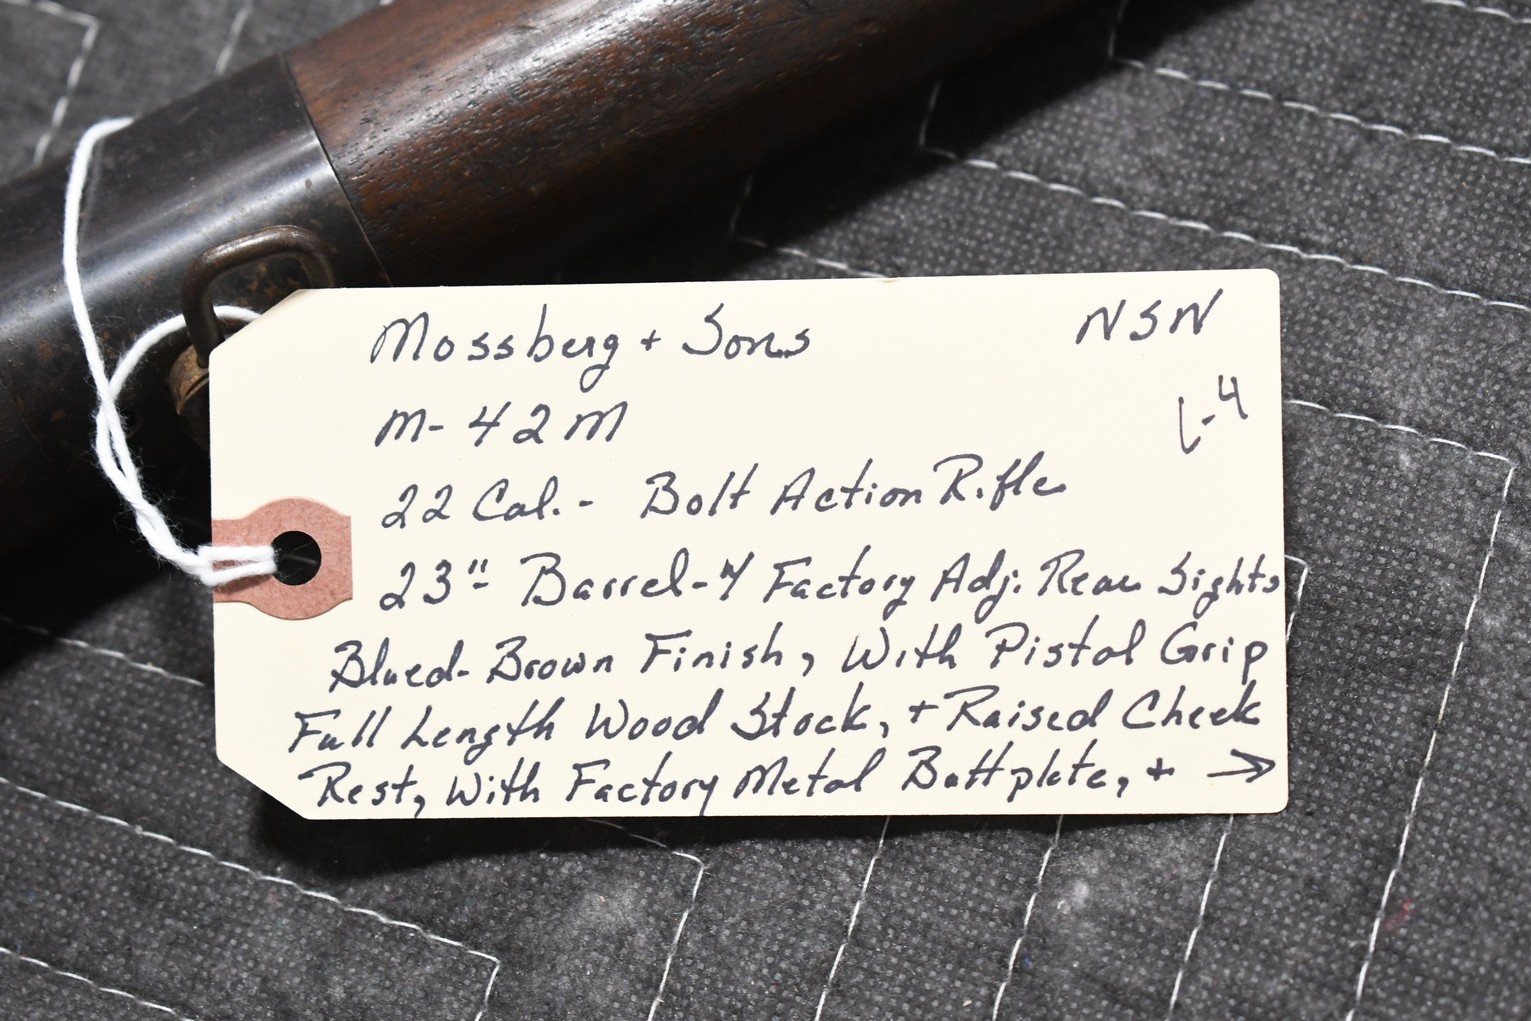 Mossberg + Sons NSN
M-42M L-4
22 Cal.- Bolt Action Rifle
23"- Barrel-4 Factory Adj. Rear Sights
Blued-Brown Finish, With Pistol Grip
Full Length Wood Stock, + Raised Cheek
Rest, With Factory Metal Buttplate, + →